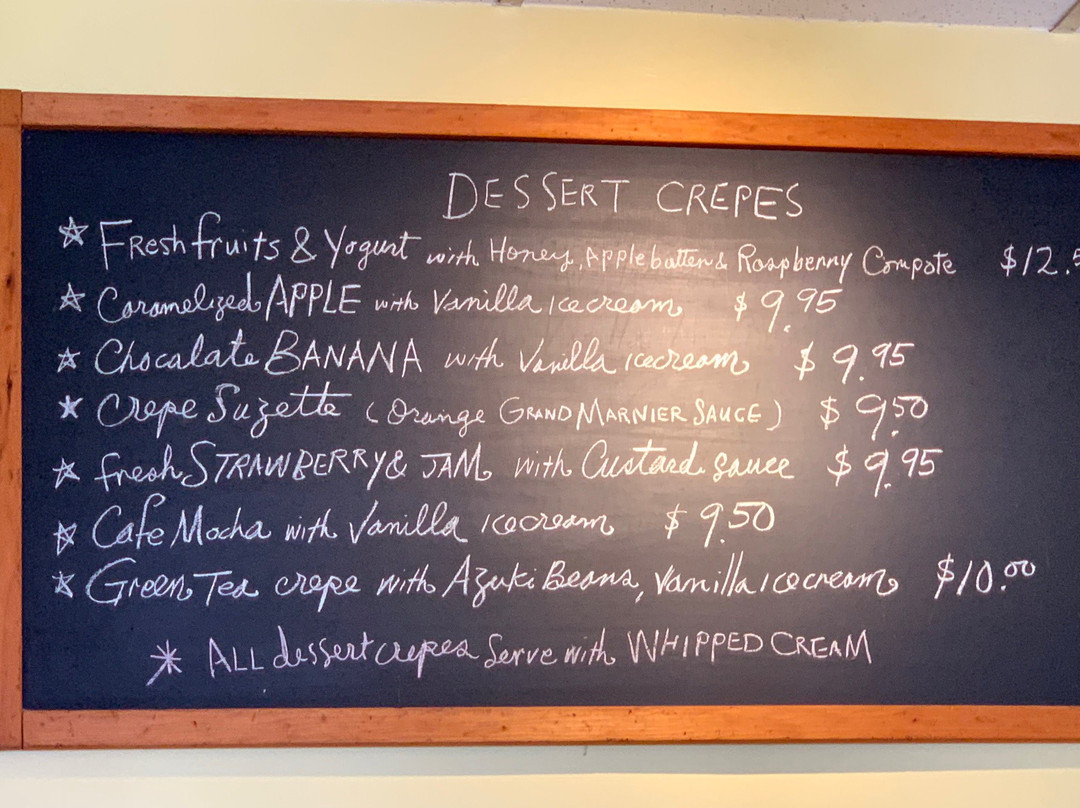 DESSERT CREPES
Fresh fruits & Yogurt with Honey, Applebutter & Raspberry Compote $12.5
Caramelized APPLE with Vanilla icecream $9.95
Chocalate BANANA with Vanilla icecream $9.95
Crepe Suzette (Orange GRAND MARNIER SAUCE) $9.50
fresh STRAWBERRY & JAM with Custard sauce $9.95
Cafe Mocha with Vanilla icecream $9.50
Green Tea crepe with Azuki Beans, Vanilla icecream $10.00
* ALL dessert crepes Serve with WHIPPED CREAM